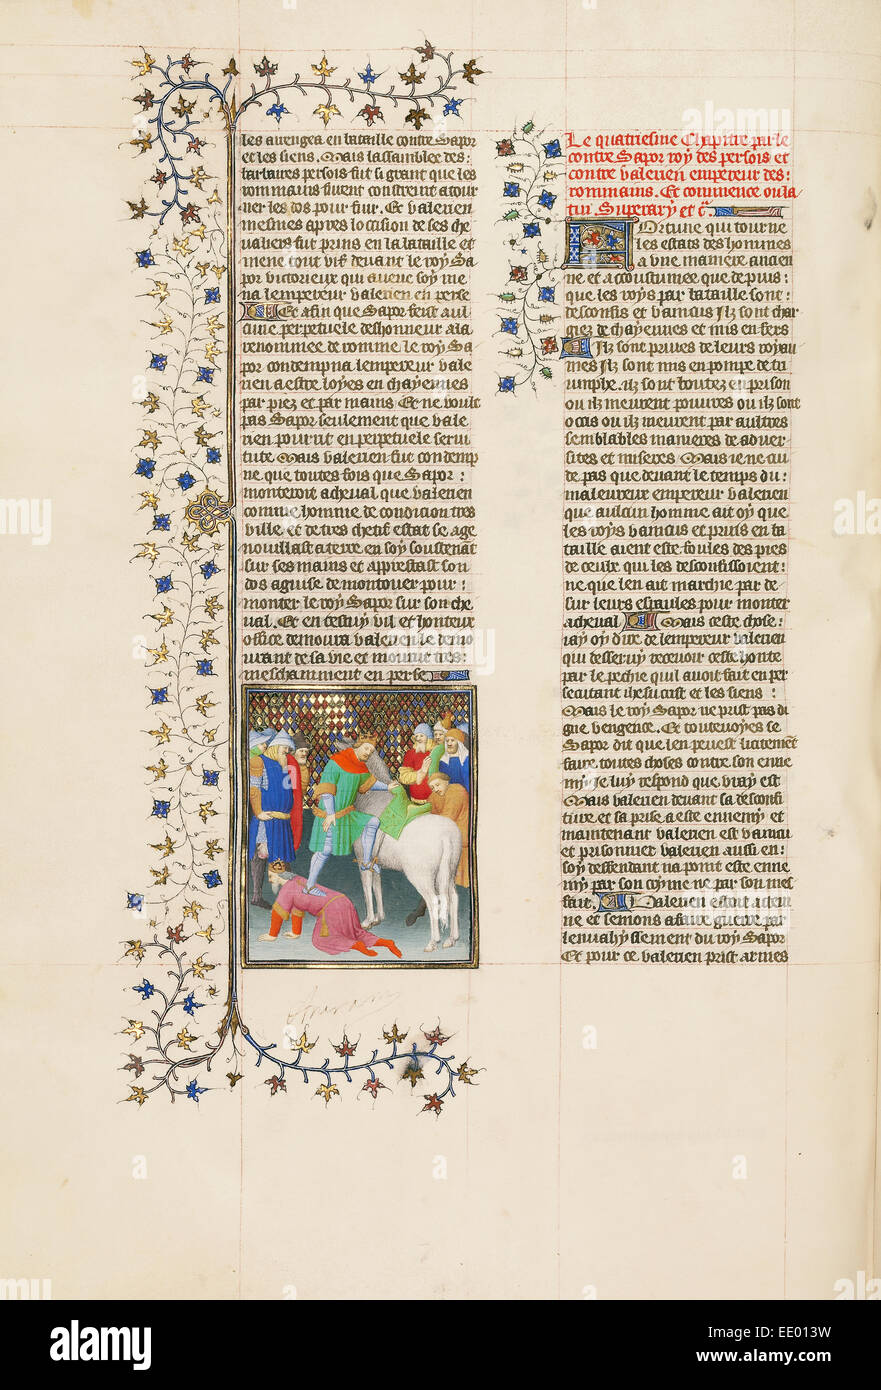 les auengea en bataille contre Sapor
et les siens. Mais lassamblee des:
barbares persois fut si grant que les
rommains furent contreint a tour
ner les dos pour fuir. Et Valerien
mesmes apres loccision de ses che
ualiers fut prins en la bataille et
mene tout vif deuant le roy Sa
por victorieux qui auec soy me
na lempereur Valerien en perse
Et afin que Sapor feist aul
cune perpetuele deshonneur a la
renommee de romme. le roy Sa
por condempna lempereur vale
rien a estre loyes en chayennes
par piez et par mains Et ne voult
pas Sapor seulement que vale
rien pourrit en perpetuele serui
tute Mais valerien fut condemp
ne que toutes fois que Sapor:
monteroit a cheual que valerien
comme homme de condicion tres
ville et de tres chetif estat se age
nouillast a terre en soy soustenat
sur ses mains et apprestast son
dos a guise de montouer pour:
monter le roy Sapor sur son che
ual. Et en cestuy vil et honteux
office demoura valerien le demo
urant de sa vie et mourut tres:
meschamment en perse
Le quatriesme Chapitre parle
contre Sapor roy des persois et
contre valerien empereur des:
rommains. Et commence ou la
tin Superary et c.
Fortune qui tourne
les estats des hommes
a vne maniere ancien
ne et acoustumee que depuis:
que les roys par bataille sont:
desconfis et vaincus Ilz sont char
giez de chayennes et mis en fers
Ilz sont priues de leurs royau
mes Ilz sont mis en pompe de tri
umphe. ilz sont boutez en prison
ou ilz meurent poiures ou ilz sont
occis ou ilz meurent par aultres
semblables manieres de aduer
sites et miseres Mais ie ne cui
de pas que deuant le temps du:
maleureux empereur valerien
que aulcun homme ait oy que
les roys vaincus et prins en ba
taille aient este foules des pies
de ceulx qui les desconfissoient:
ne que len ait marchie par de
sur leurs espaules pour monter
a cheual Mais ceste chose:
iay oy dire de lempereur valerien
qui desseruy receuoir ceste honte
par le pechie quil auoit fait en per
secutant ihesucrist et les siens:
Mais le roy Sapor ne prist pas di
gne vengence. Et toutevoyes se
Sapor dit que len peust licitement
faire toutes choses contre son enne
my Ie luy respond que vray est
Mais valerien deuant sa desconfi
ture et sa prise a este ennemy et
maintenant valerien est vaincu
et prisonnier valerien aussi en:
soy deffendant na point este enne
my par son cryme ne par son mes
fait. Valerien estoit a
ne et semons a faire guerre par
lenuahyssement du roy Sapor
Et pour ce valerien prist armes
alamy
alamy
alamy
Image ID: EE013W
www.alamy.com